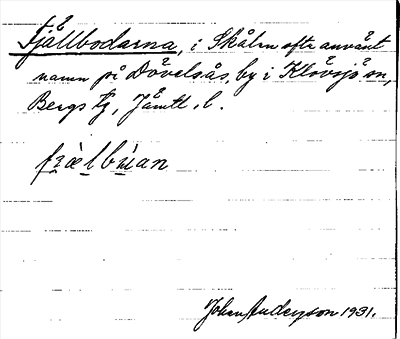 Fjällbodarna, i Skålen ofta använt
namn på Dövelsås, by i Klövsjö sn,
Bergs tg, Jämtl. l.
Johan Anderson 1931.